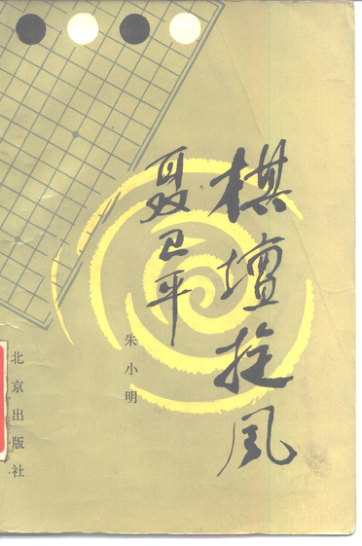 棋壇旋风
聂卫平
朱小明
北京出版社